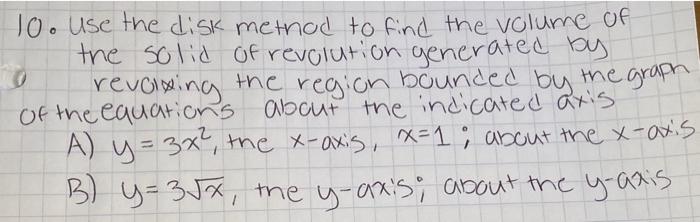 10. Use the disk method to find the volume of
the solid of revolution generated by
revolving the region bounded by the graph
of the equations about the indicated axis
A) y = 3x², the x-axis, x=1; about the x-axis
B) y = 3√x, the y-axis; about the y-axis